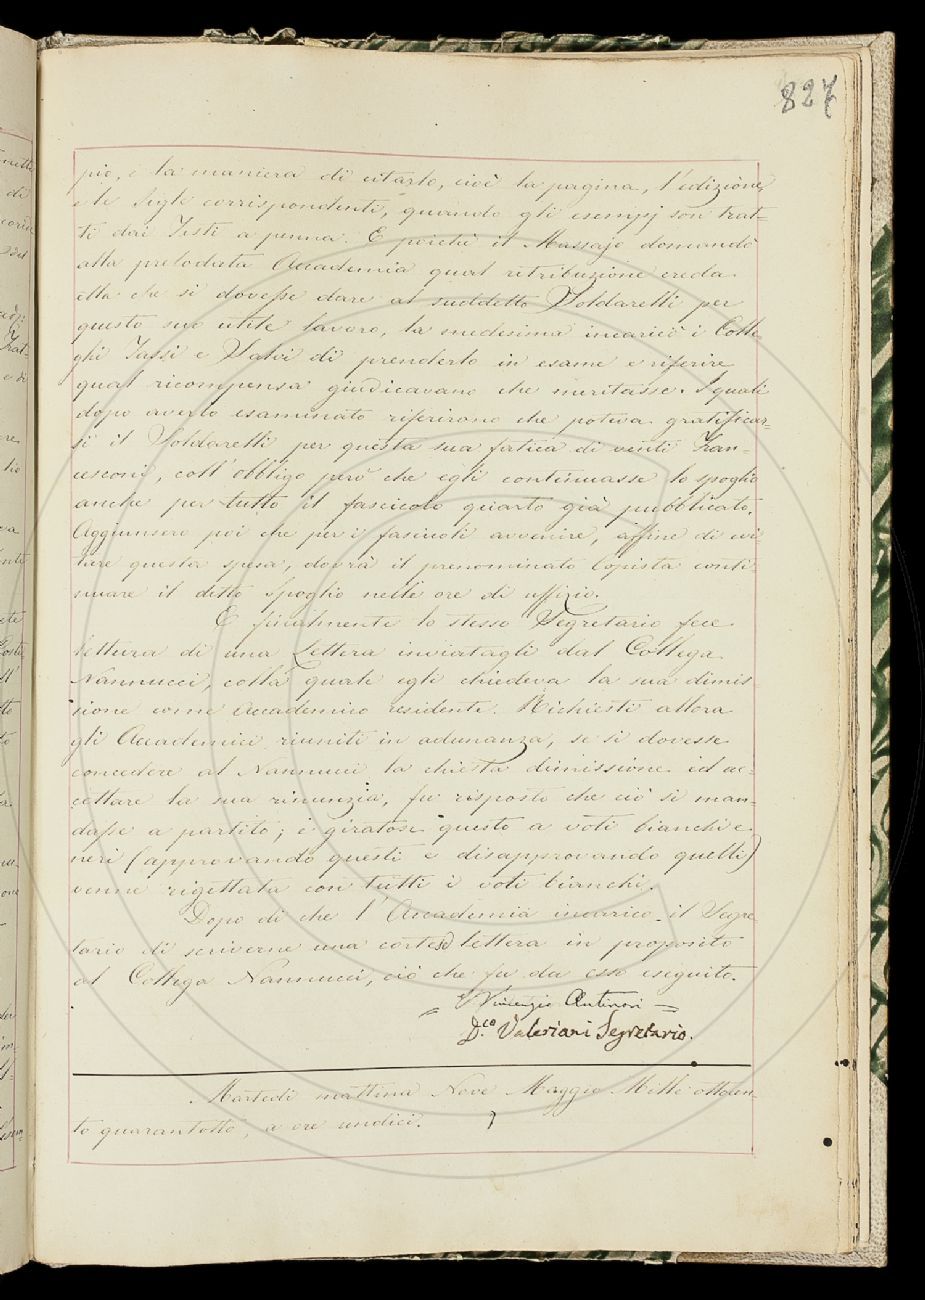 827
pio, e la maniera di citarlo, cioè la pagina, l'edizione,
e le sigle corrispondenti, quando gli esempj son trat=
ti dai Testi a penna. E poichè il Massajo domandò
alla prelodata Accademia qual retribuzione creda
ella che si dovesse dare al suddetto Soldarelli per
questo suo utile lavoro, la medesima incaricò i Colle=
ghi Tassi e Salvi di prenderlo in esame e riferire
qual ricompensa giudicavano che meritasse. I quali
dopo averlo esaminato riferirono che poteva gratificar=
si il Soldarelli per questa sua fatica di venti Fran=
cesconi, coll'obbligo però che egli continuasse lo spoglio
anche per tutto il fascicolo quarto già pubblicato.
Aggiunsero poi che per i fascicoli avvenire, affine di evi=
tare questa spesa, dovrà il prenominato Copista conti=
nuare il detto spoglio nelle ore di uffizio.
E finalmente lo stesso Segretario fece
lettura di una Lettera inviatagli dal Collega
Nannucci, colla quale egli chiedeva la sua dimis=
sione come Accademico residente. Richiesti allora
gli Accademici riuniti in adunanza, se si dovesse
concedere al Nannucci la chiesta dimissione ed ac=
cettare la sua rinunzia, fu risposto che ciò si man=
dasse a partito; e giratosi questo a voti bianchi e
neri (approvando questi e disapprovando quelli)
venne rigettata con tutti i voti bianchi.
Dopo di che l'Accademia incaricò il Segre
tario di scriverne una cortese lettera in proposito
al Collega Nannucci, ciò che fu da esso eseguito.
Vincenzio Antinori
D.co Valeriani Segretario.
Martedì mattina Nove Maggio Mille ottocen=
to quarantotto, a ore undici.